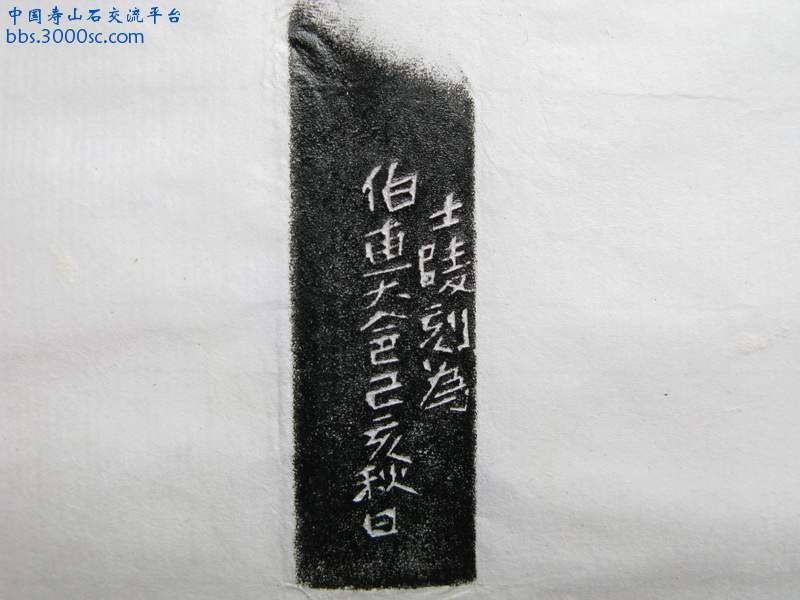 中国寿山石交流平台
bbs.3000sc.com
士陵刻為
伯惠大令己亥秋日